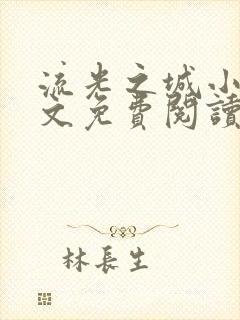 流光之城小
文免費閱讀
林長生